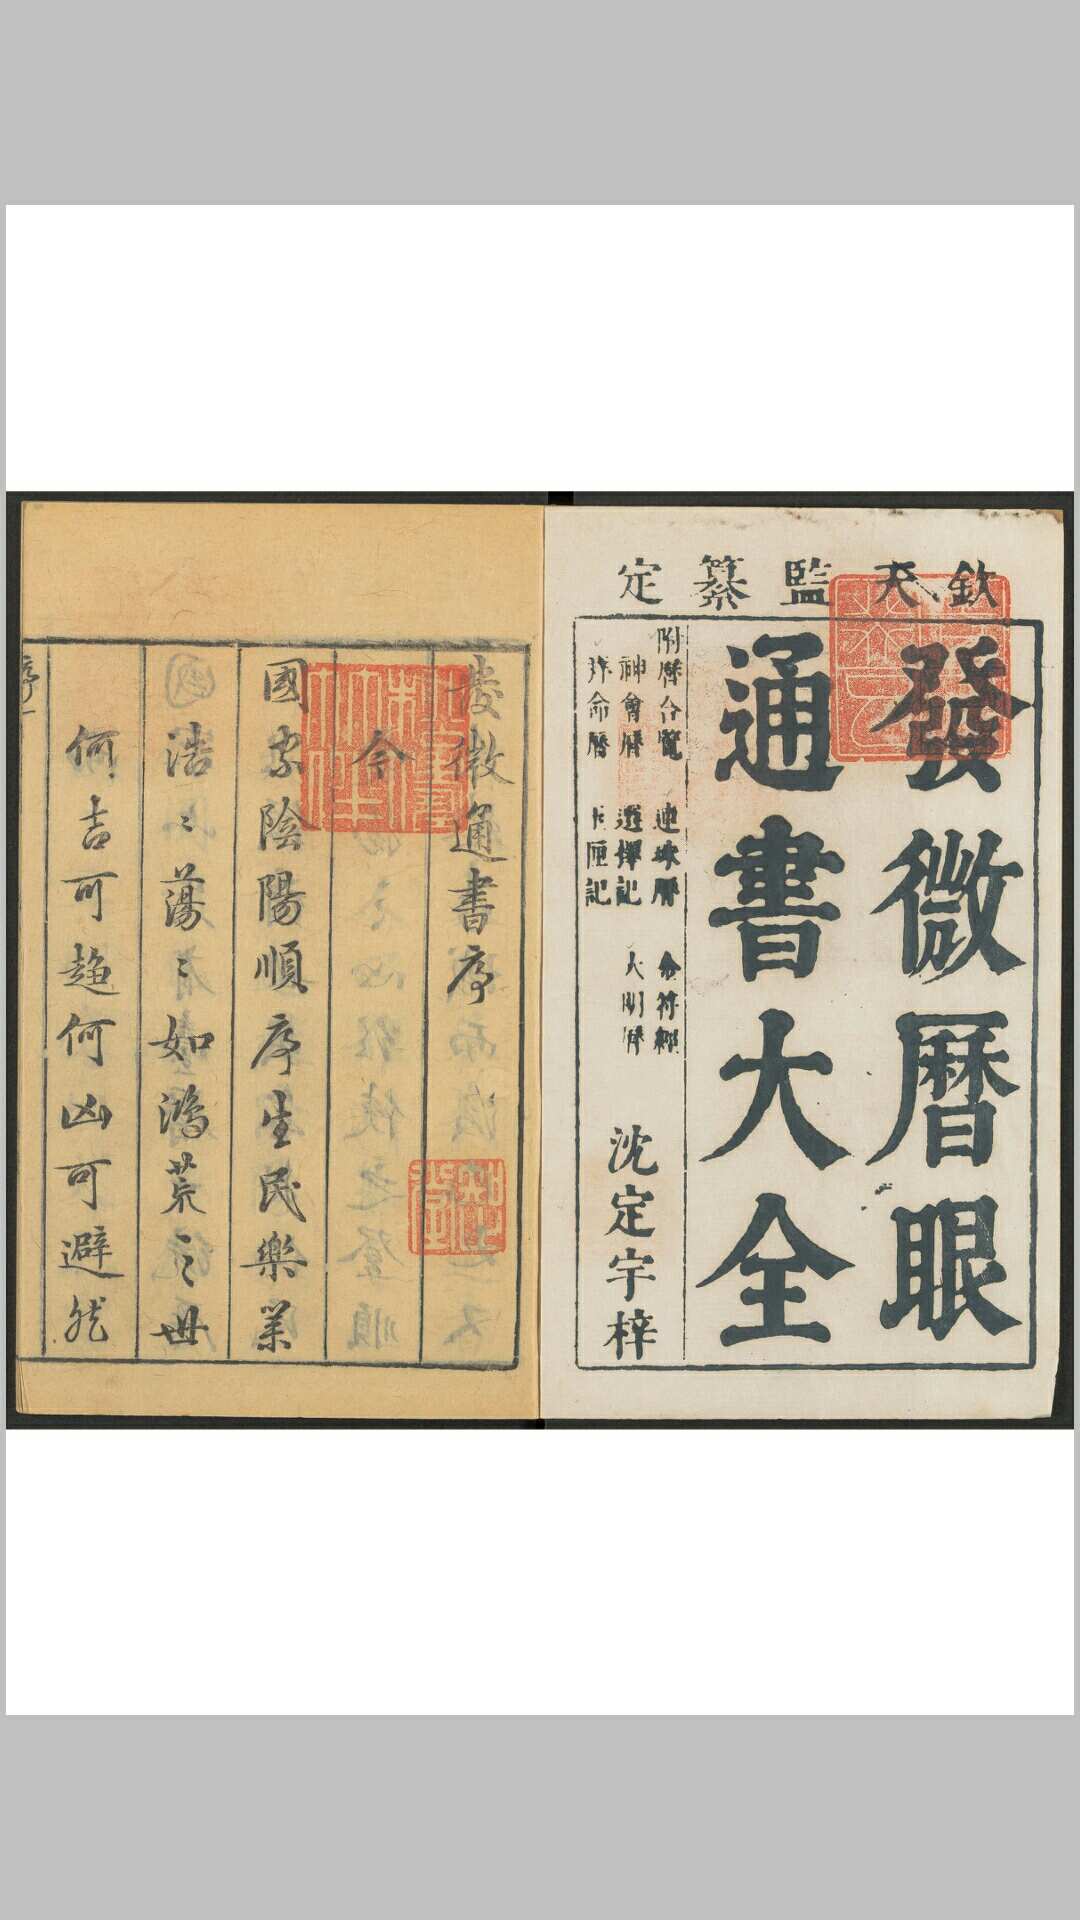 欽天監纂定
發微曆眼
通書大全
附曆合覽 連珠曆 金符經
神會曆 選擇記 大明曆
沈定宇梓
發微通書序
今
國家陰陽順序生民樂業
浩〻蕩〻如鴻荒之世
何吉可趨何凶可避然
序一